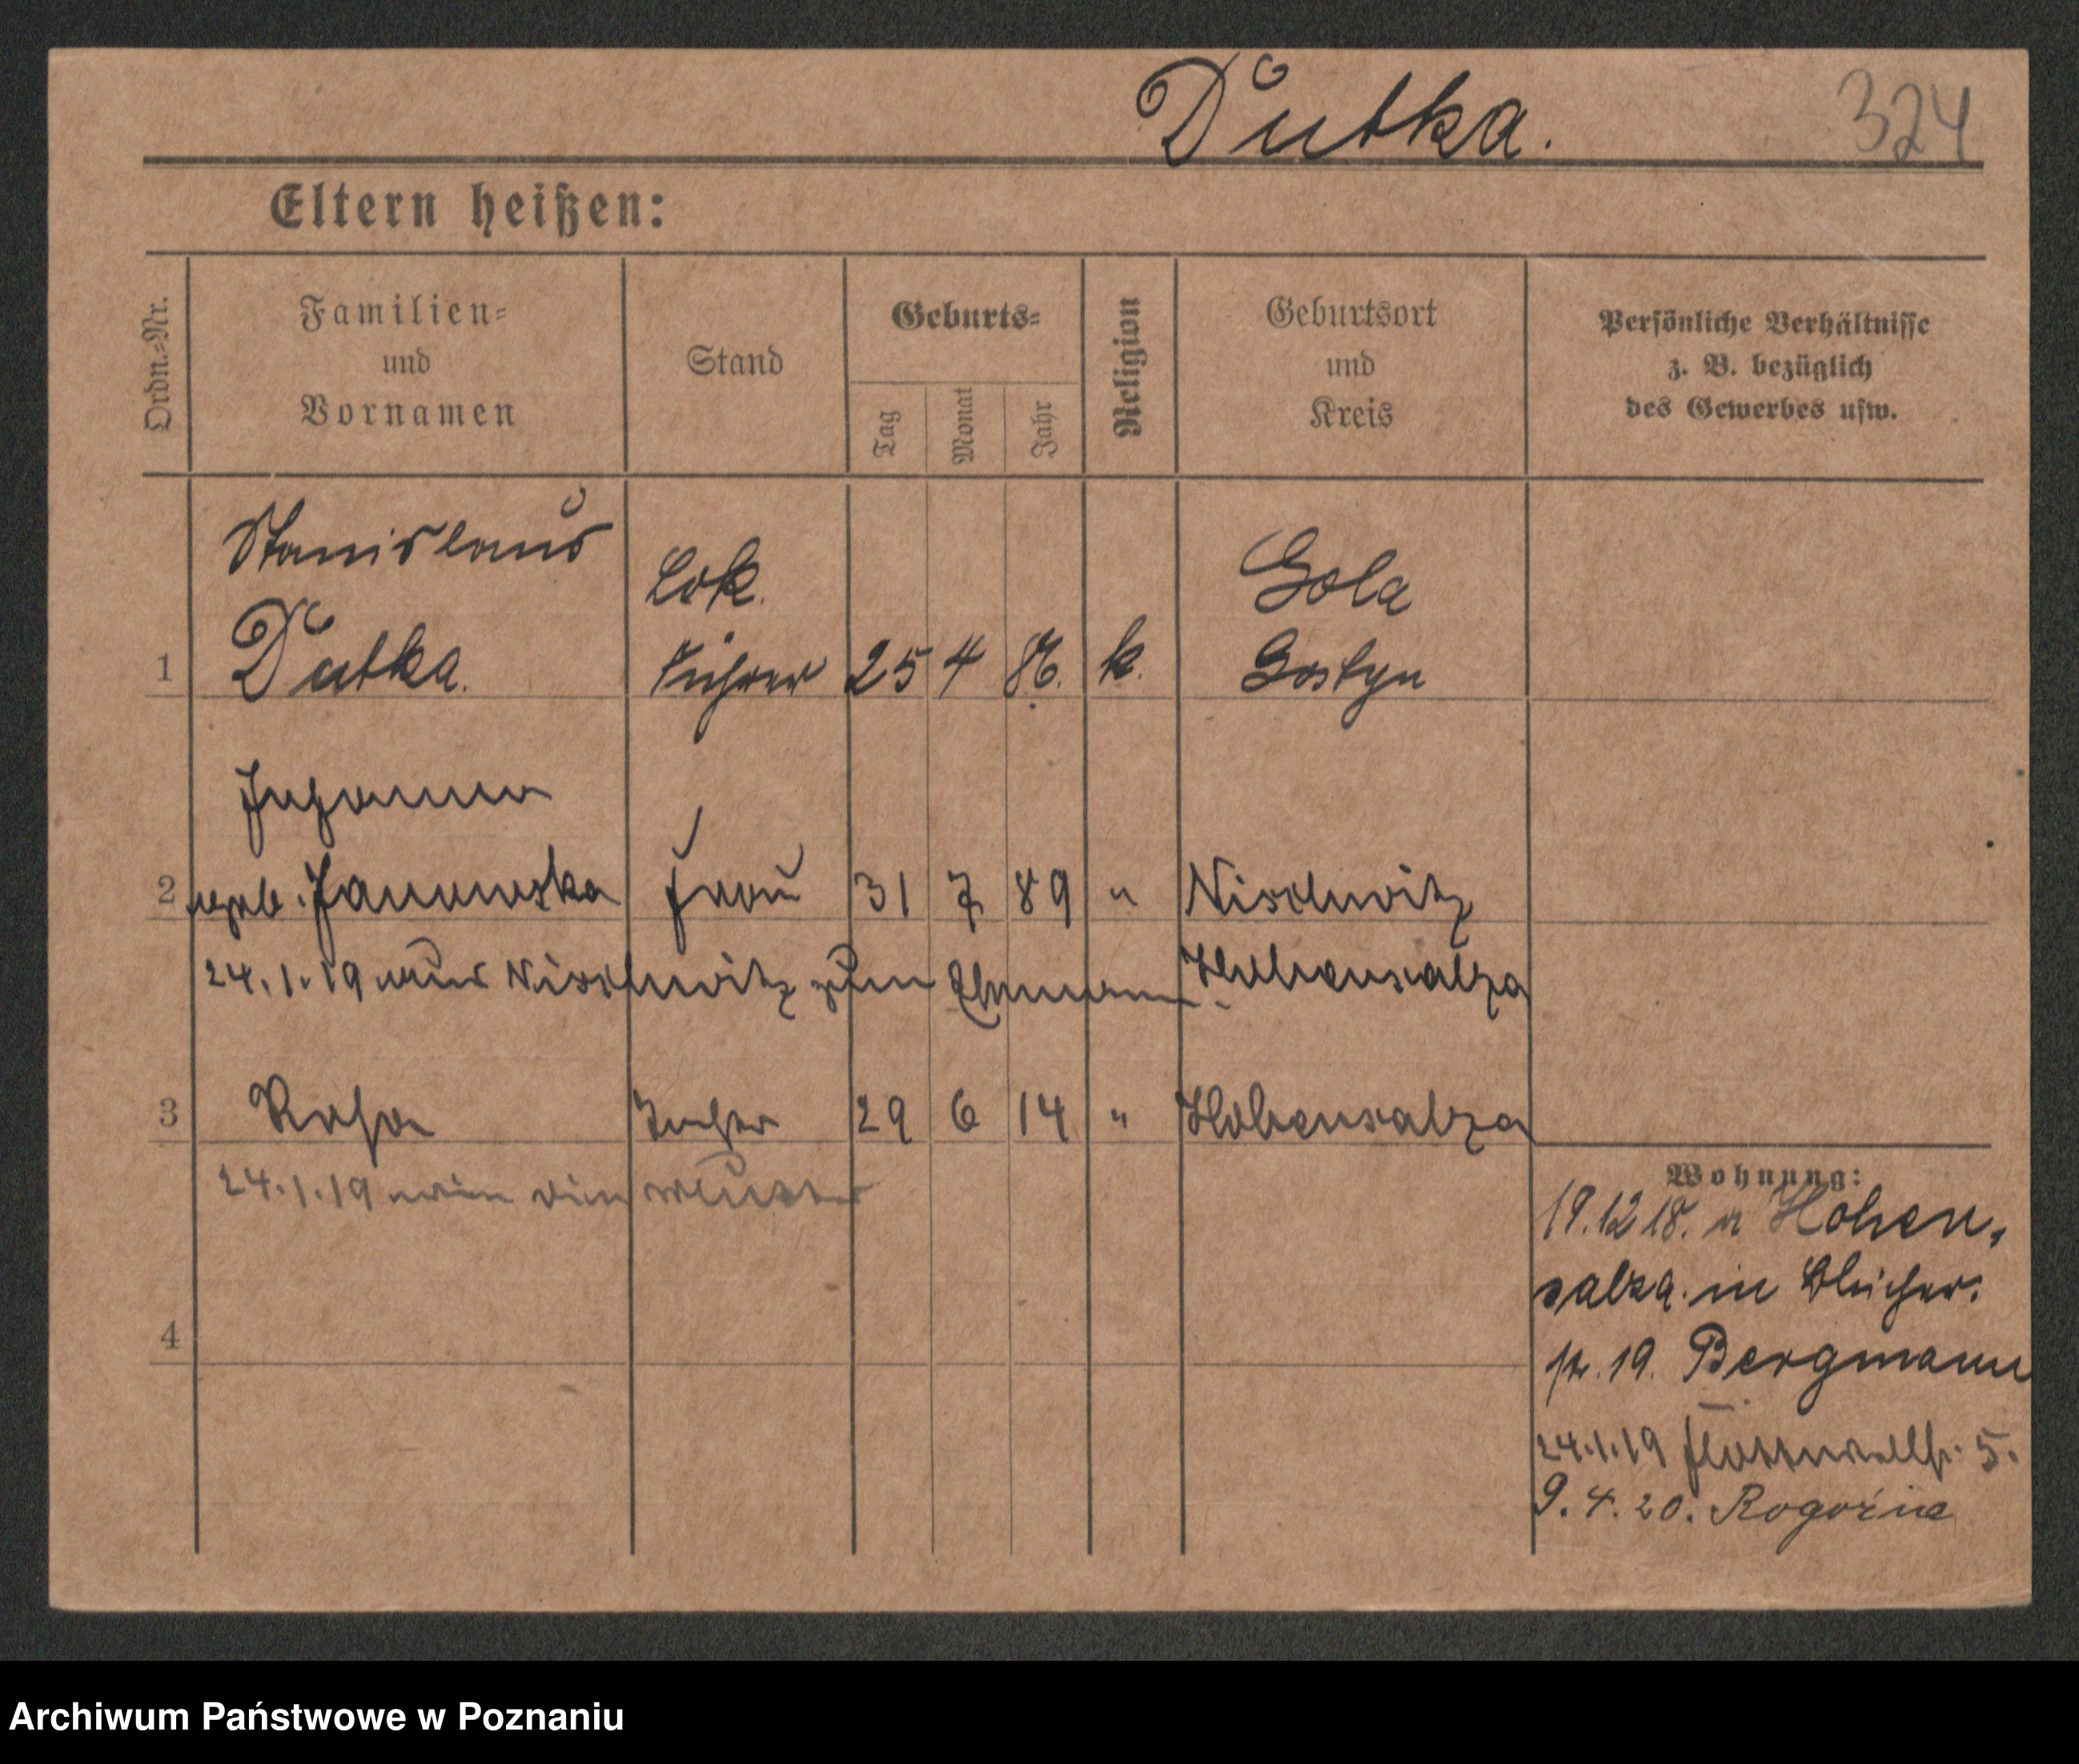 Dutka.
324
Eltern heißen:
Ordn.-Nr.
Familien-
und
Vornamen
Stand
Geburts-
Tag
Monat
Jahr
Religion
Geburtsort
und
Kreis
Persönliche Verhältnisse
z. B. bezüglich
des Gewerbes usw.
Stanislaus
Lok.
Gola
1 Dutka. Führer 25 4 86. k. Gostyn
Johanna
2 geb. Janowska Frau 31 7 89 " Nischwitz
24.1.19 aus Nischwitz zum Ehemann. Hohensalza
3 Rosa Tochter 29 6 14 " Hohensalza
24.1.19 wie die Mutter
4
Wohnung:
19.12 18. a Hohen-
salza. in Blücher.
str. 19. Bergmann
24.1.19 Flottwellstr. 5.
9. 4. 20. Rogoźno
Archiwum Państwowe w Poznaniu